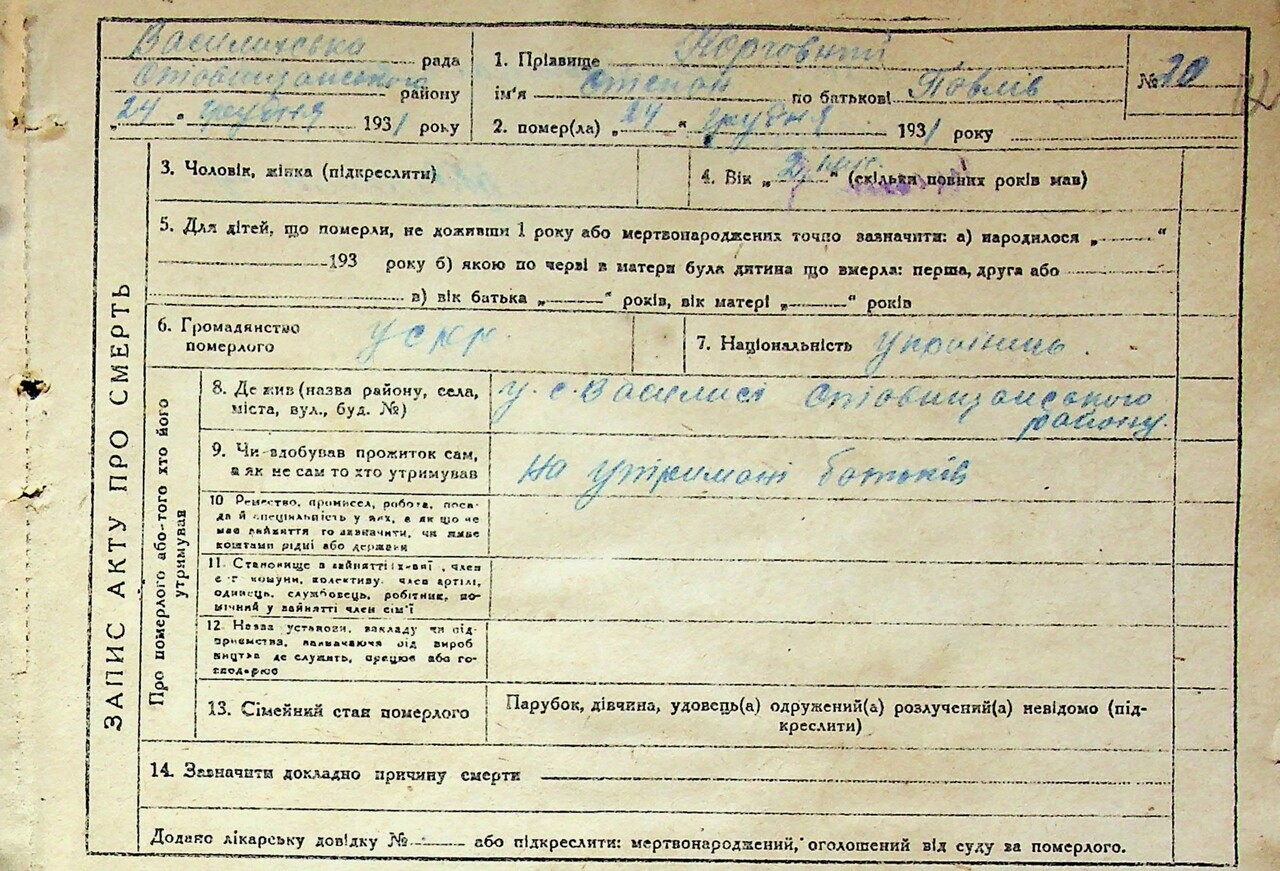 Василиська рада
Ставищанського району
„24" грудня 1931 року
1. Прізвище Корговний
ім'я Степан по батькові Павлів
2. помер(ла) „24" грудня 1931 року
№ 20
3. Чоловік, жінка (підкреслити)
4. Вік „2" (скільки повних років мав)
5. Для дітей, що померли, не доживши 1 року або мертвонароджених точно зазначити: а) народилося „ "
193 року б) якою по черві в матери була дитина що вмерла: перша, друга або
в) вік батька „ " років, вік матері „ " років
6. Громадянство
померлого
УСРР.
7. Національність українець.
ЗАПИС АКТУ ПРО СМЕРТЬ
Про померлого або-того хто його
утримував
8. Де жив (назва району, села,
міста, вул., буд. №)
у с. Василисі Ставищанського
району.
9. Чи здобував прожиток сам,
а як не сам то хто утримував
на утримані батьків
10 Ремество, промисел, робота, поса-
да й спеціяльність у них, а як що не
має зайняття то зазначити, чи живе
коштами рідні або держави
11. Становище в зайнятті: член
с-г комуни, колективу, член артілі,
одинець, службовець, робітник, по-
мічний у зайнятті член сім'ї
12 Назва установи, закладу чи під-
приємства, зазначаючи від вироб
ництва де служить, працює або го-
сподарює
13. Сімейний стан померлого
Парубок, дівчина, удовець(а) одружений(а) розлучений(а) невідомо (під-
креслити)
14. Зазначити докладно причину смерти
Додано лікарську довідку № або підкреслити: мертвонароджений, оголошений від суду за померлого.